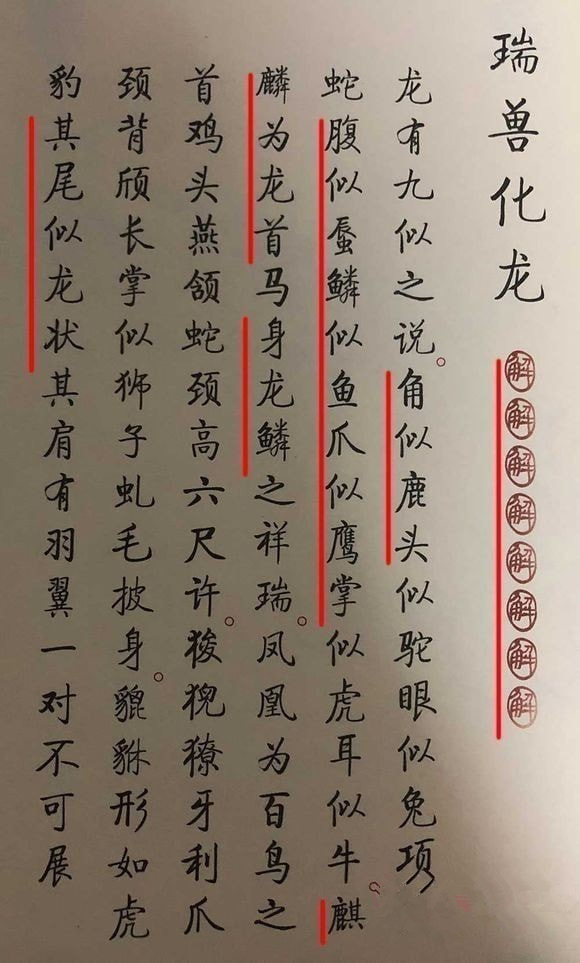 瑞兽化龙
解解解解解解解解
龙有九似之说。角似鹿头似驼眼似兔项
蛇腹似蜃鳞似鱼爪似鹰掌似虎耳似牛。麒
麟为龙首马身龙鳞之祥瑞。凤凰为百鸟之
首鸡头燕颔蛇颈高六尺许。狻猊獠牙利爪
颈背颀长掌似狮子虬毛披身。貔貅形如虎
豹其尾似龙状其肩有羽翼一对不可展